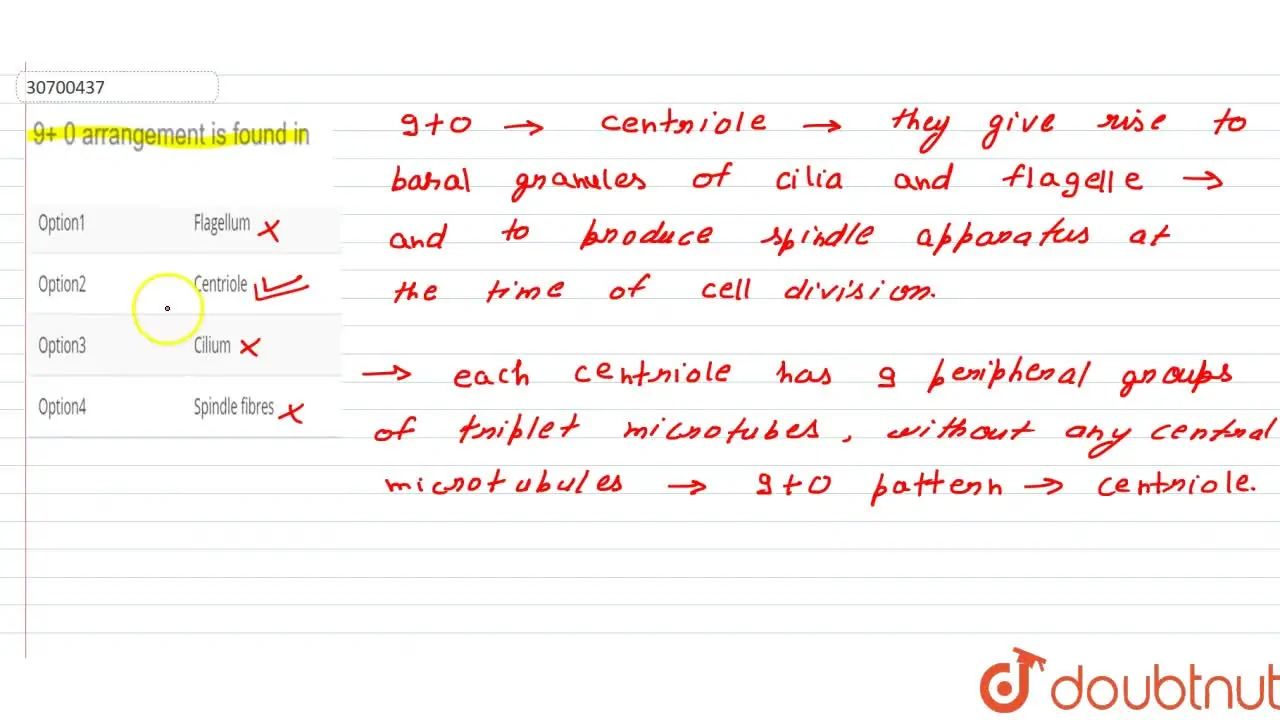 30700437
9+ 0 arrangement is found in
Option1 Flagellum ×
Option2 Centriole ✓
Option3 Cilium ×
Option4 Spindle fibres ×
9+0 → centriole → they give rise to
basal granules of cilia and flagelle →
and to produce spindle apparatus at
the time of cell division.
→ each centriole has 9 peripheral groups
of triplet microtubes, without any central
microtubules → 9+0 pattern → centriole.
doubtnut